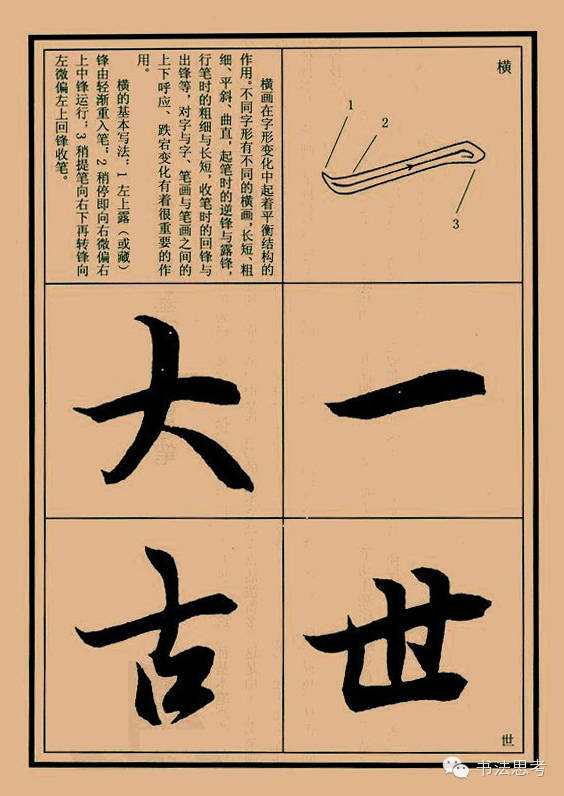 横
1
2
3
横画在字形变化中起着平衡结构的
作用。不同字形有不同的横画,长短、粗
细、平斜、曲直,起笔时的逆锋与露锋,
行笔时的粗细与长短,收笔时的回锋与
出锋等,对字与字、笔画与笔画之间的
上下呼应、跌宕变化有着很重要的作
用。
横的基本写法:1 左上露(或藏)
锋由轻渐重入笔;2 稍停即向右微偏右
上中锋运行;3 稍提笔向右下再转锋向
左微偏左上回锋收笔。
一
世
大
古
世
书法思考